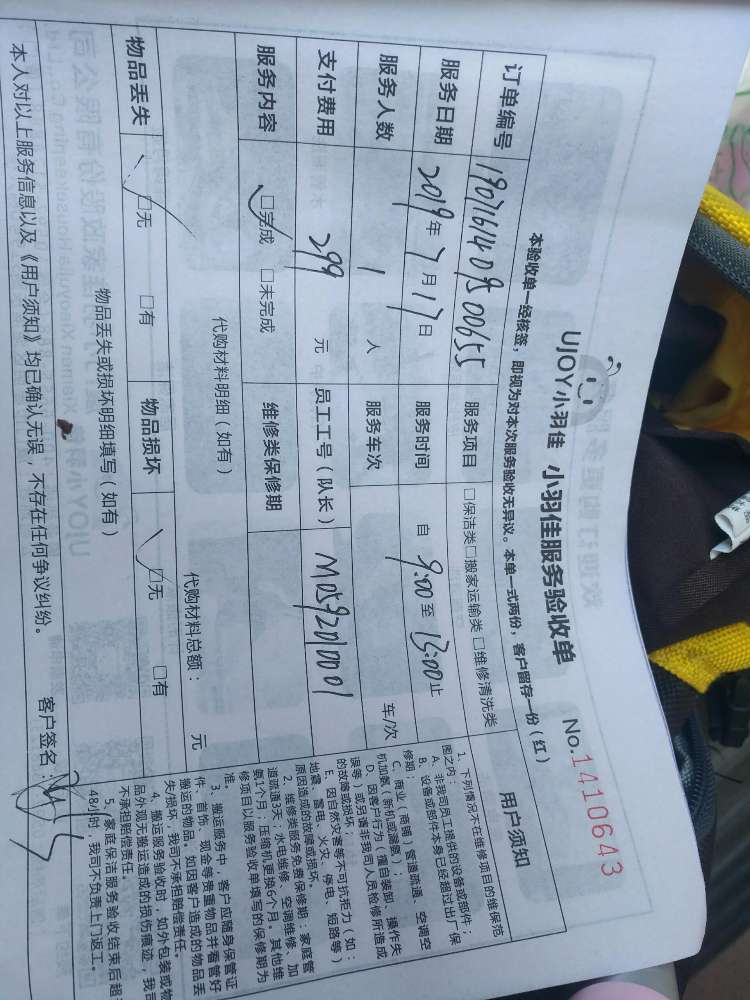 UJOY小羽佳 小羽佳服务验收单
No.1410643
本验收单一经核签，即视为对本次服务验收无异议。本单一式两份，客户留存一份（红）
订单编号 1907161409500655 服务项目 □保洁类□搬家运输类□维修清洗类
服务日期 2019年7月17日 服务时间 自 9:00 至 13:00 止
服务人数 1 人 服务车次 车/次
支付费用 299 元 员工工号（队长） M0592010001
服务内容 □完成 □未完成 维修类保修期
代购材料明细（如有） 代购材料总额： 元
物品丢失 □无 □有 物品损坏 □无 □有
物品丢失或损坏明细填写（如有）
本人对以上服务信息以及《用户须知》均已确认无误，不存在任何争议纠纷。
客户签名：
用户须知
1、下列情况不在维修项目的维保范
围之内：
A、非我司员工提供的设备或部件；
B、设备或部件本身已经超过出厂保
修期；
C、商业（商铺）管道疏通、空调空
机加氨（新机或漏氨）；
D、因客户行为（擅自装卸、操作失
误等）或聘请非我司人员检修所造成
的故障或损坏；
E、因自然灾害等不可抗拒力（如：
地震、雷电、火灾、停电、短路等）
原因造成的故障或损坏。
2、维修类服务免费保修期：家庭管
道疏通3天；水电维修、空调维修、加
氨1个月；压缩机更换6个月。其他维
修项目以服务验收单填写的保修期为
准。
3、搬运服务中，客户应随身保管证
件、首饰、现金等贵重物品并看管好
搬运的物品。如因客户造成的物品丢
失损坏，我司不承担赔偿责任。
4、搬运服务验收时，如外包装或物
品外观无搬运造成的损伤痕迹，我司
不承担赔偿责任。
5、家庭保洁服务验收结束后超
48小时，我司不负责上门返工。